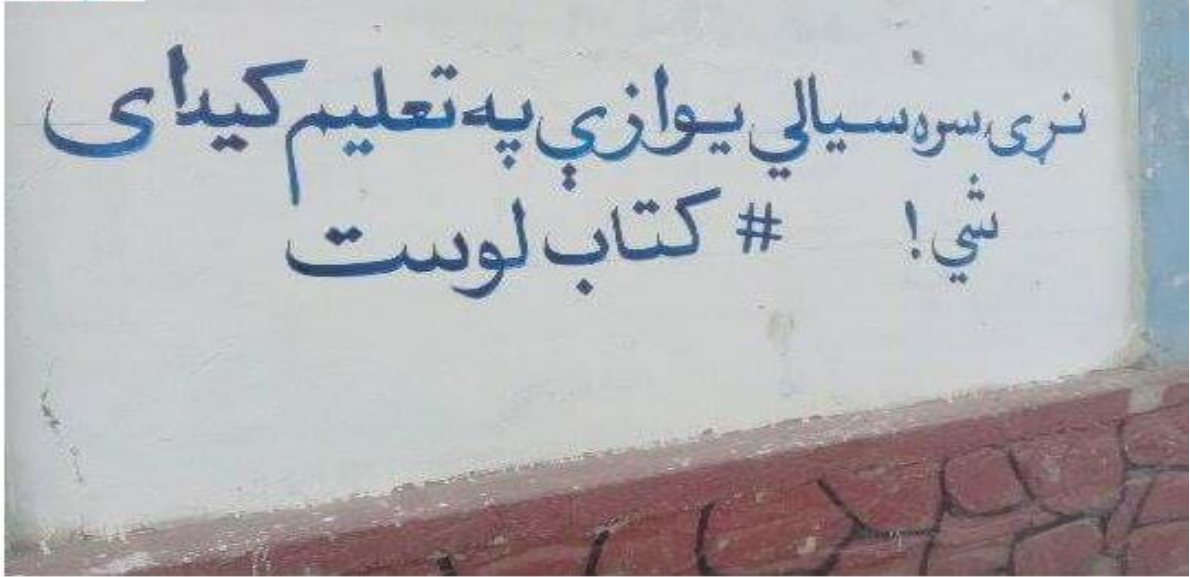 نړی سره سيالي يوازې په تعليم کيدای
شي! # کتاب لوست